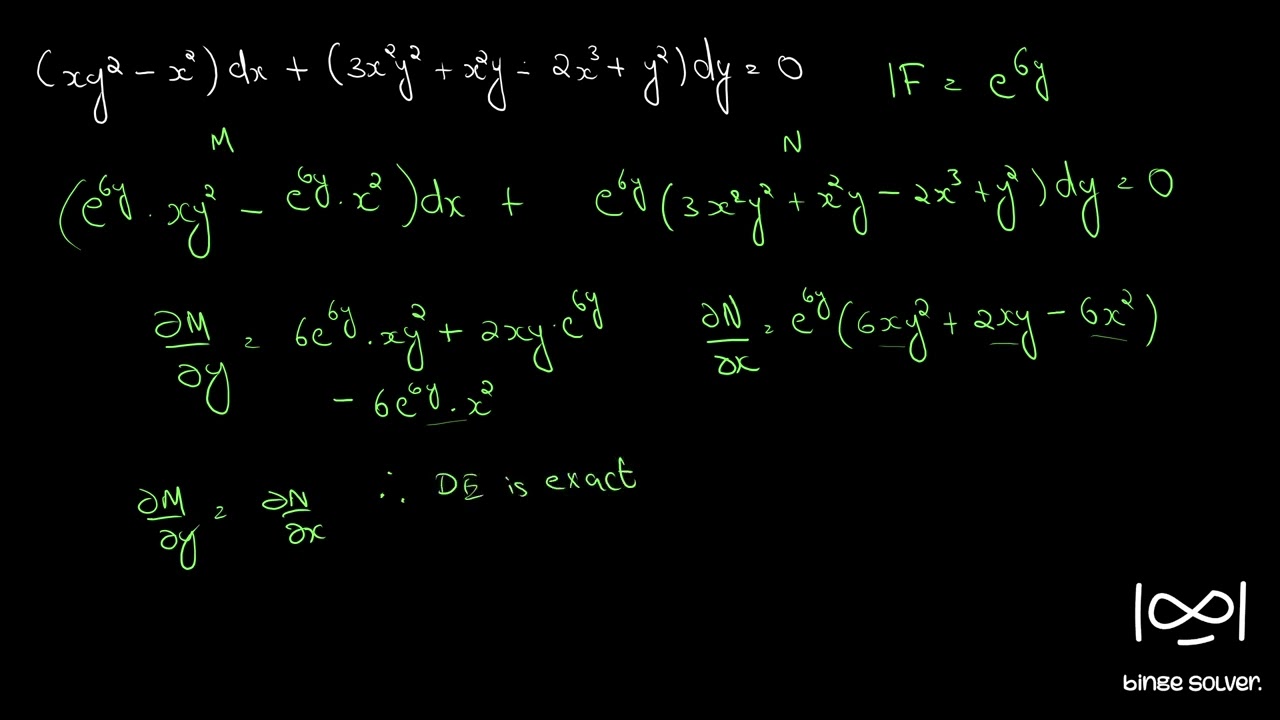 (xy² − x²) dx + (3x²y² + x²y − 2x³ + y²) dy = 0
IF = e^{6y}
M
N
(e^{6y} · xy² − e^{6y} · x²) dx + e^{6y} (3x²y² + x²y − 2x³ + y²) dy = 0
∂M/∂y = 6e^{6y} · xy² + 2xy · e^{6y}
− 6e^{6y} · x²
∂N/∂x = e^{6y} (6xy² + 2xy − 6x²)
∂M/∂y = ∂N/∂x ∴ DE is exact
binge solver.